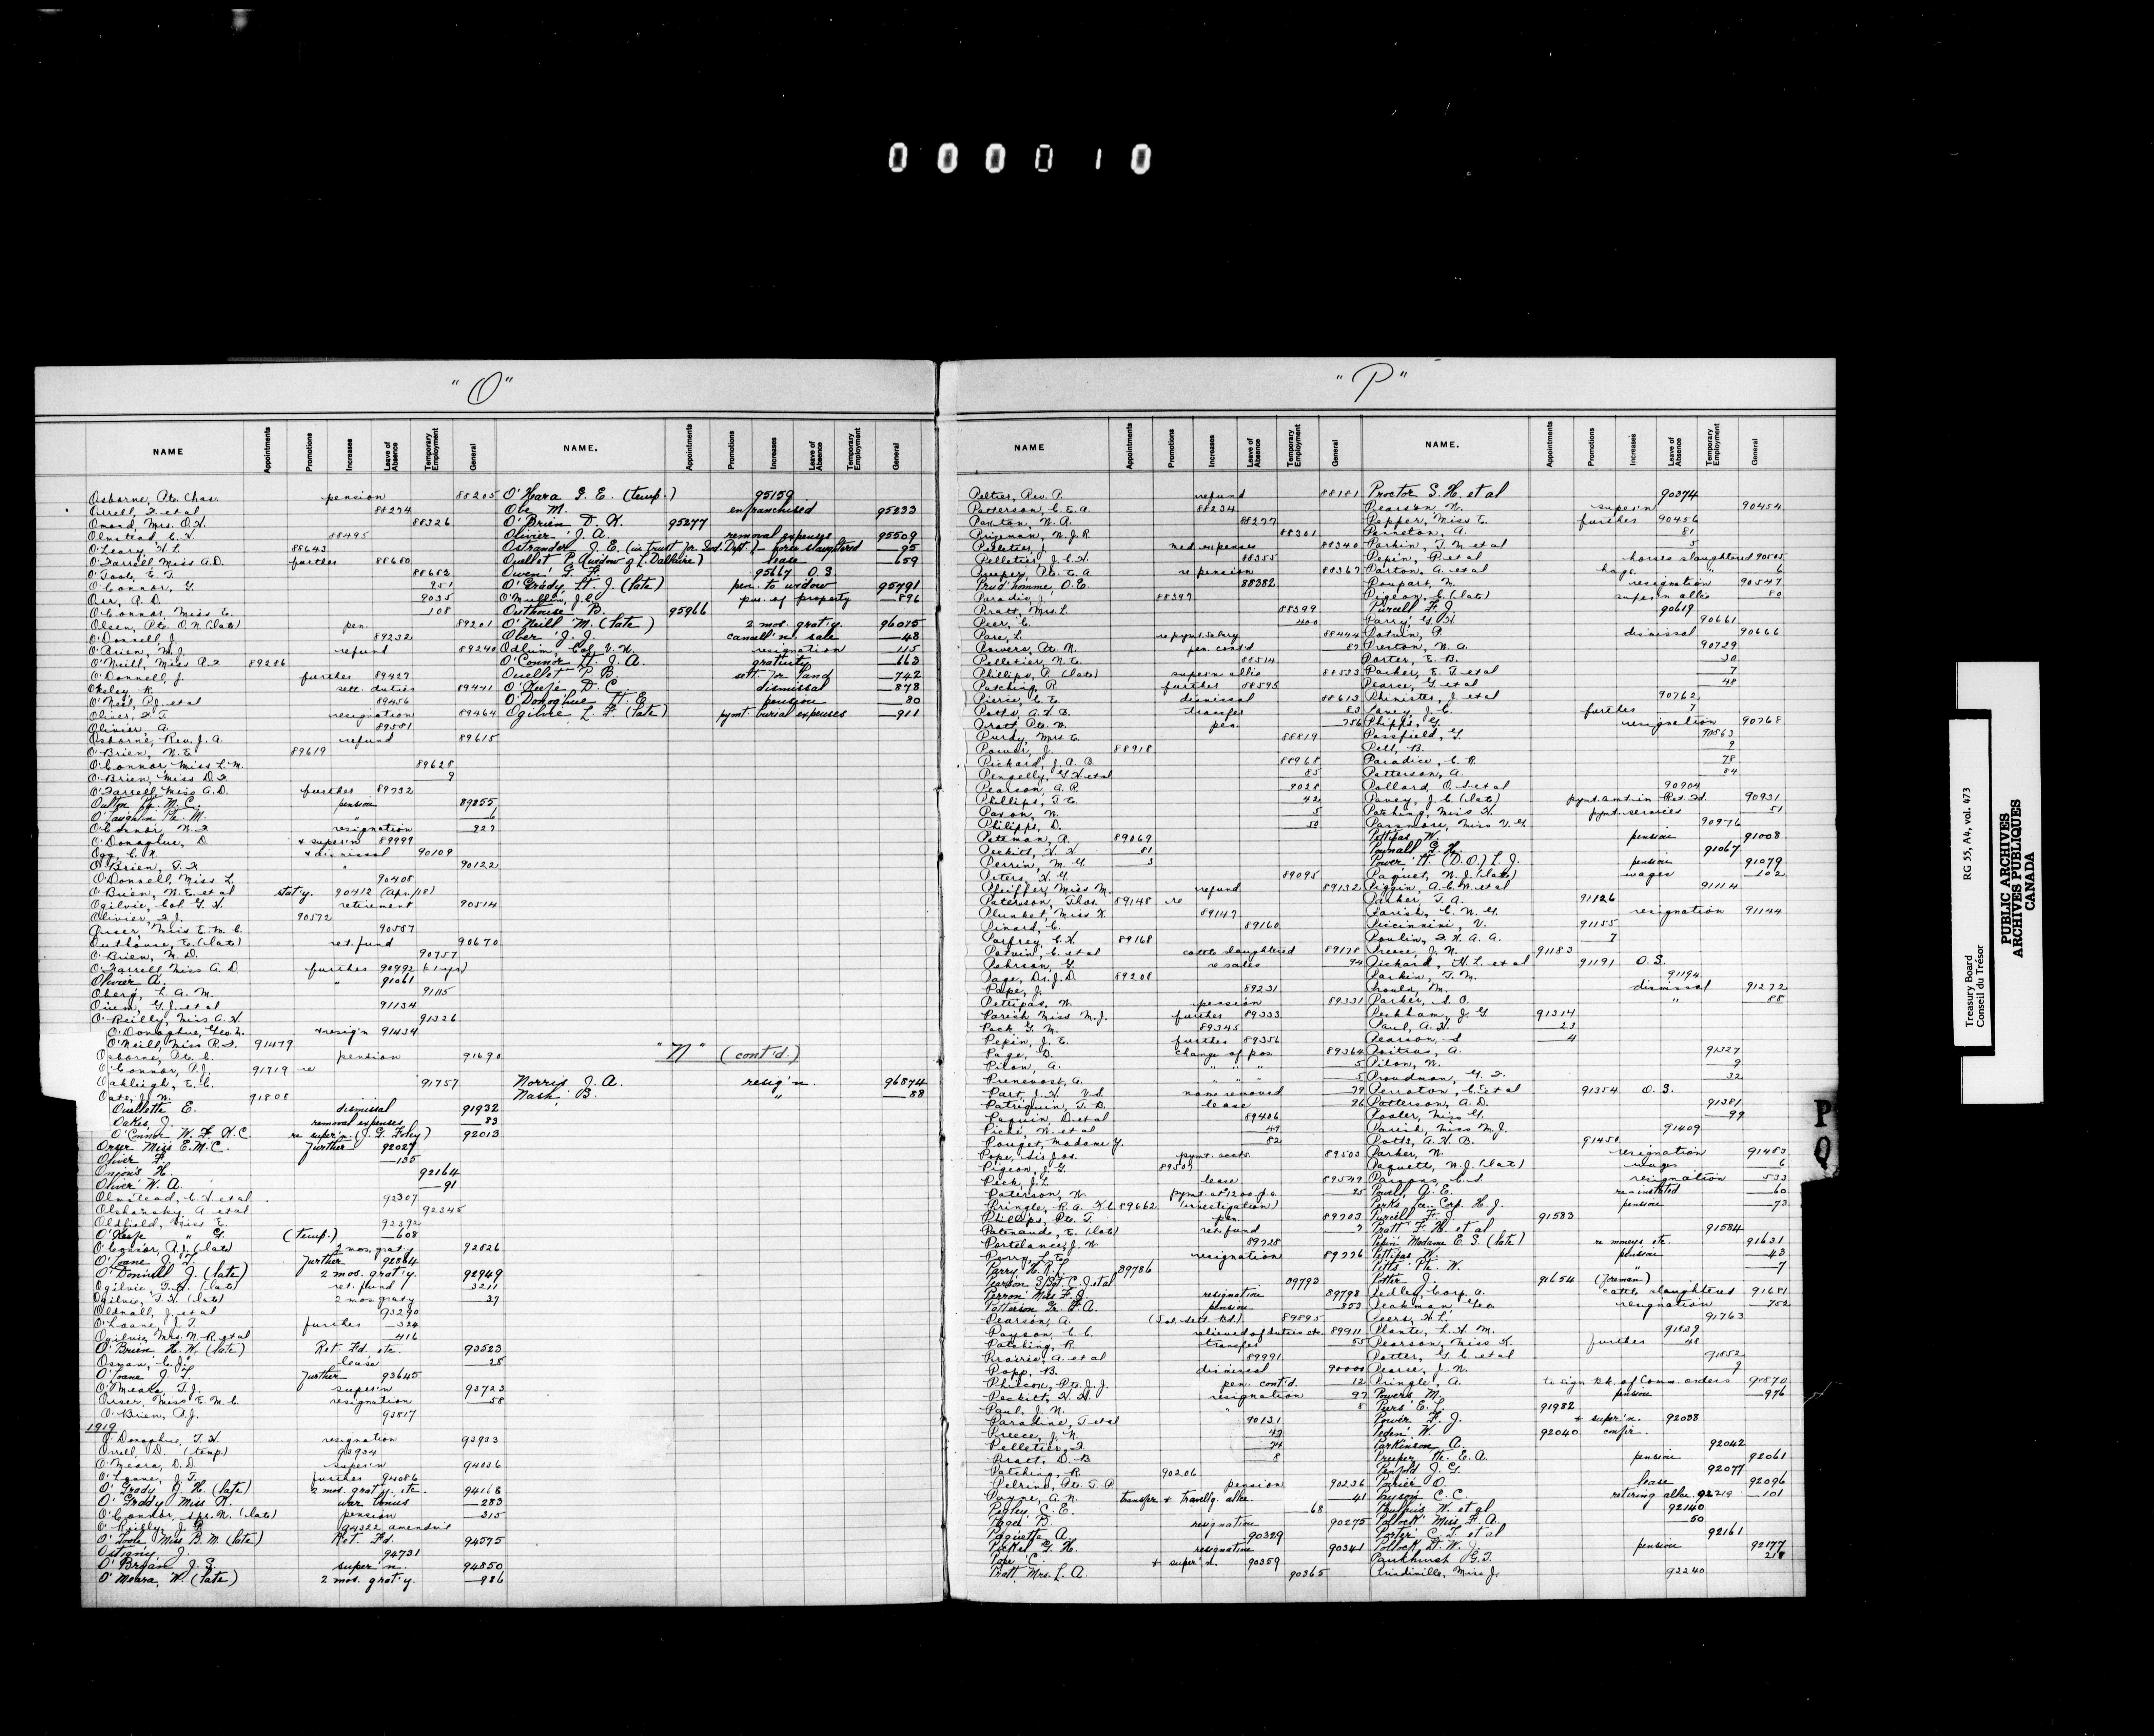 000010
"O"
NAME Appointments Promotions Increases Leave of Absence Temporary Employment General NAME. Appointments Promotions Increases Leave of Absence Temporary Employment General
Osborne, Pte. Chas. pension 88205
Orrell, F. et al 88274
Omond, Mrs. O.H. 88326
Olmstead, C.H. 88495
O'Leary, H.L. 88643
O'Farrell Miss A.D. further 88680
O'Toole, E.T. 88682
O'Connor, G. 951
Orr, A.D. 9035
O'Connor, Miss E. 108
Olsen, Pte. O.N. (late) pen. 89201
O'Donnell, J. 89232
O'Brien, M.J. refund 89240
O'Neill, Miss R.F. 89286
O'Donnell, J. further 89427
Okeley, R. sett. duties 89441
O'Neil, P.J. et al 89456
Oliver, F.T. resignation 89464
Olivier, A. 89581
Osborne, Rev. J.A. refund 89615
O'Brien, N.E. 89619
O'Connor, Miss L.M. 89628
O'Brien, Miss D.F. 9
O'Farrell Miss A.D. further 89732
Oulton Lt. M.C. pension 89855
O'Laughlin Pte. M. "
O'Connor, N.F. resignation 927
O'Donoghue, D. + super'n 89999
Ogg, C.N. + dismissal 90109
O'Brien, T.F. " 90122
O'Donnell, Miss L. 90408
O'Brien, N.E. et al stat'y. 90412 (Apr./18)
Ogilvie, Col. G.H. retirement 90514
Olivier, F.J. 90572
Orser, Miss E.M.C. 90587
Outhouse, E. (late) ret. fund 90670
O'Brien, M.D. 90757
O'Farrell Miss A.D. further 90992
Olivier A. " 91061
Oberg, L.A.M. 91115
Oium, G.J. et al 91134
O'Reilly, Miss A.H. 91326
O'Donoghue, Geo. N. + resig'n 91434
O'Neill, Miss R.F. 91479
Osborne, Pte. C. pension 91690
O'Connor, P.J. 91719 re
Oakleigh, E.C. 91757
Oate, J.W. 91808
Ouellette E. dismissal 91932
Oakes, J. removal expenses 83
O'Connor W.F. K.C. re super'n. (J.G. Foley) 92013
Orser Miss E.M.C. Further 92027
Oliver F. 135
Onions H. 92164
Oliver W.A. 91
Olmstead, C.H. et al 92307
Olshansky, A. et al 92345
Oldfield, Miss E. 92392
O'Keefe " G. (temp.) 608
O'Connor, A.J. (late) 2 mos. graty 92826
O'Loane J.T. Further 92864
O'Donnell J. (late) 2 mos. grat'y. 92949
Ogilvie, G.H. (late) ret. fund 3211
Ogilvie, G.H. (late) 2 mos. graty 37
Oldnall, J. et al 93290
O'Loane, J.T. further 324
Ogilvie, Mrs. N.R. et al 416
O'Brien H.W. (late) Ret. Fd. etc. 93523
Osman, C.J. lease 25
O'Loane J.T. Further 93645
O'Meara, T.J. super'n 93723
Orser, Miss E.M.C. resignation 58
O'Brien, A.J. 93817
1919
O'Donoghue, T.H. resignation 93933
Orrell, D. (temp) 93934
O'Meara, D.D. super'n 94036
O'Loane, J.T. further 94086
O'Grady J.H. (late) 2 mos. grat'y. etc. 94168
O'Grady Miss K. war bonus 283
O'Connor, Spr. N. (late) pension 315
O'Reilly, J.B. 94322 amendm't
O'Toole Miss B.M. (late) Ret. Fd. 94575
Ostigny J. 94731
O'Brian J.S. super'n. 94850
O'Meara, W. (late) 2 mos. grat'y. 986
O'Hara G.E. (temp.) 95159
Obe M. enfranchised 95233
O'Brien D.K. 95277
Olivier J.A. removal expenses 95509
Ostrander J.E. (in trust for Ind. Dept.) - horse slaughtered 95
Ouellet P. (widow of L. Dalhaire) lease 659
Owen G.F. 95667 O.S.
O'Grady Lt. J. (late) pen. to widow 95791
O'Mullin, J.C. pur. of property 896
Outhouse B. 95966
O'Neill M. (late) 2 mos. grat'y. 96015
Ober J.J. cancell'n. sale 48
Odlum, Col. V.W. resignation 115
O'Connor Lt. J.A. gratuity 663
Ouellet P.B. sett. for land 742
O'Keefe D.C. dismissal 878
O'Donoghue H.E. pension 80
Ogilvie L.F. (late) pymt. burial expenses 911
"N" (cont'd.)
Norris J.A. resig'n. 96874
Nash B. " 88
"P"
NAME Appointments Promotions Increases Leave of Absence Temporary Employment General NAME. Appointments Promotions Increases Leave of Absence Temporary Employment General
Peltier, Rev. P. refund 88181
Patterson, C.E.A. 88234
Paxton, W.A. 88277
Prizeman, W.J.R. 88301
Pelletier, J. med. expenses 88340
Pelletier, J.C.H. 88355
Preeper, Pte. E.A. re pension 88367
Prud'homme, O.E. 88382
Paradis, J. 88397
Pratt, Mrs. L. 88399
Peer, C. 400
Pare, L. re pymt. salary 88444
Powers, Pte. N. pen. cont'd 87
Pelletier, N.E. 88514
Phillips, P. (late) super'n allce 88533
Patching, R. further 88595
Pierce, C.E. dismissal 88613
Potts, A.H.B. transfer 83
Pratt, Pte. W. pen. 756
Purdy, Mrs. E. 88819
Power, J. 88918
Pickard, J.A.B. 88968
Pengelly, G.H. et al 85
Pearson, A.P. 9028
Phillips, T.E. 42
Paxon, W. 5
Philipps, D. 53
Pateman, R. 89069
Peckitt, H.H. 81
Perrin, M.G. 3
Peters, H.G. 89095
Pfeiffer, Miss M. refund 89132
Paterson, Thos. 89148 re
Plunket, Miss K. 89147
Pinard, C. 89160
Parfrey, C.H. 89168
Potvin, C. et al cattle slaughtered 89178
Pehrson, G. re sales 94
Page, Dr. J.D. 89208
Pape, J. 89231
Pettipas, W. pension 89331
Parish Miss M.J. further 89333
Pack G.M. 89345
Pepin, J.E. further 89356
Page, D. change of pos. 89364
Pilon, A. " " " 5
Prenevost, A. " " " 5
Part, J.H. V.S. name removed 79
Patriquin, T.D. lease 26
Paquin, D. et al 89406
Piché, W. et al 49
Pouget, Madame Y. 82
Pope, Sir Jos. pymt. accts. 89503
Pigeon, J.G. 89507
Peck, J.L. lease 89549
Paterson, W. pymt. at 1200 p.a. 95
Pringle, R.A. K.C. 89662 (investigation)
Phillips, Pte. T. pen. 89703
Patenaude, E. (late) ret. fund 7
Portelance, J.W. 89728
Perry, L.E. resignation 89776
Parry H.R.L. 89786
Pearson S/Sgt. C.J. et al 89793
Perron Miss F.J. resignation 89798
Patterson Gr. F.A. pension 853
Pearson, A. (Sol. Sett. Bd) 89895
Payson, C.C. relieved of duties etc 89911
Patching, R. transfer 55
Prairie, A. et al 89991
Popp, B. dismissal 90000
Philcox, Pte. J.J. pen. cont'd. 12
Peckitt, H.H. resignation 97
Paul, J.N. " 8
Paradine, T. et al 90131
Preece, J.N. 47
Pelletier, F. 74
Pratt, D.B. 8
Patching, R. 90206
Pelrine, Pte. T.P. pension 90236
Payne, A.N. transfer + travell'g. allce. 41
Pegley, C.E. 68
Pond B. resignation 90275
Paquette A. 90329
Pickel G.H. resignation 90341
Pope C. + super'n. 90359
Pratt, Mrs. L.A. 90365
Proctor S.H. et al 90374
Pearson N. super'n 90454
Pepper, Miss E. further 90456
Penneton, A. 81
Parkin, T.M. et al 5
Pepin, P. et al horses slaughtered 90505
Parton, A. et al hogs " 6
Poupart, N. resignation 90547
Pigeon, C. (late) super'n allce 80
Purcell F.J. 90619
Parry G.H. 90661
Potvin, P. dismissal 90666
Preston, N.A. 90729
Porter, E.B. 30
Parker, E.T. et al 7
Pearce, G. et al 48
Phinister, J. et al 90762
Pavey, J.C. further 7
Phipps, G. resignation 90768
Passfield, G. 90863
Pell, B. 9
Paradice, C.R. 78
Patterson, A. 84
Pollard, O.S. et al 90904
Pavey, J.C. (late) pymt. amt. in Ret. Fd. 90931
Patching, Miss H. pymt. services 51
Passmore, Miss V.G. 90976
Pettipas, W. pension 91008
Pownall G.H. 91067
Power Lt. (D.O.) L.J. pension 91079
Paquet, N.J. (late) wages 102
Piggin, A.C.W. et al 91114
Parker, T.A. 91126
Parish, C.N.G. resignation 91144
Piccinnini, V. 91155
Poulin, F.X.A.A. 7
Preece, J.N. 91183
Pickard, H.L. et al 91191 O.S.
Parkin, T.M. 91194
Proulx, M. dismissal 91272
Parker, S.O. " 88
Peckham, J.G. 91314
Paul, A.H. 23
Pearson, S. 4
Poitras, A. 91327
Pilon, N. 9
Proudman, G.F. 32
Perraton, C.E. et al 91354 O.S.
Patterson, A.D. 91381
Pooler, Miss G. 99
Parish, Miss M.J. 91409
Potts, A.H.B. 91450
Parker, N. resignation 91483
Paquette, N.J. (late) wages 6
Parsons, C.S. resignation 533
Powell, A.E. re-instated 60
Perks, Lce. Corp. H.J. pension 73
Purcell F.J. 91583
Pratt F.H. et al 91584
Pepin Madame E.S. (late) re moneys etc. 91631
Pettipas W. pension 43
Pitts Pte. W. " 7
Potter J. 91654 (Foreman)
Pedley, Corp. A. cattle slaughtered 91681
Peakman, Geo resignation 752
Peers, H.L. 91763
Plante, L.H.M. 91839
Pearson, Miss K. further 48
Potter, G.C. et al 91852
Pearse, J.N. 9
Pringle, A. to sign bk. of Comm. orders 91870
Powers M. pension 976
Peers E.L. 91982
Power F.J. + super'n. 92038
Peden W. 92040 confir.
Parkinson A. 92042
Preeper Pte. E.A. pension 92061
Penfold J.G. 92077
Poirier O. lease 92096
Payson C.C. retiring allce. 92219 101
Phillips W. et al 92140
Pollock Miss F.A. 50
Porter C.T. et al 92161
Pollock Lt. W.J. pension 92177
Parkhurst G.T. 218
Prindiville, Miss J. 92240
P
Q
Treasury Board RG 55, A4, vol. 473
Conseil du Trésor
PUBLIC ARCHIVES
ARCHIVES PUBLIQUES
CANADA